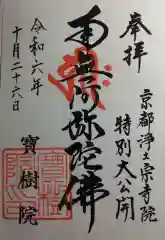 奉拝
京都浄土宗寺院
特別大公開
南無阿弥陀佛
令和六年
十月二十六日
寶樹院